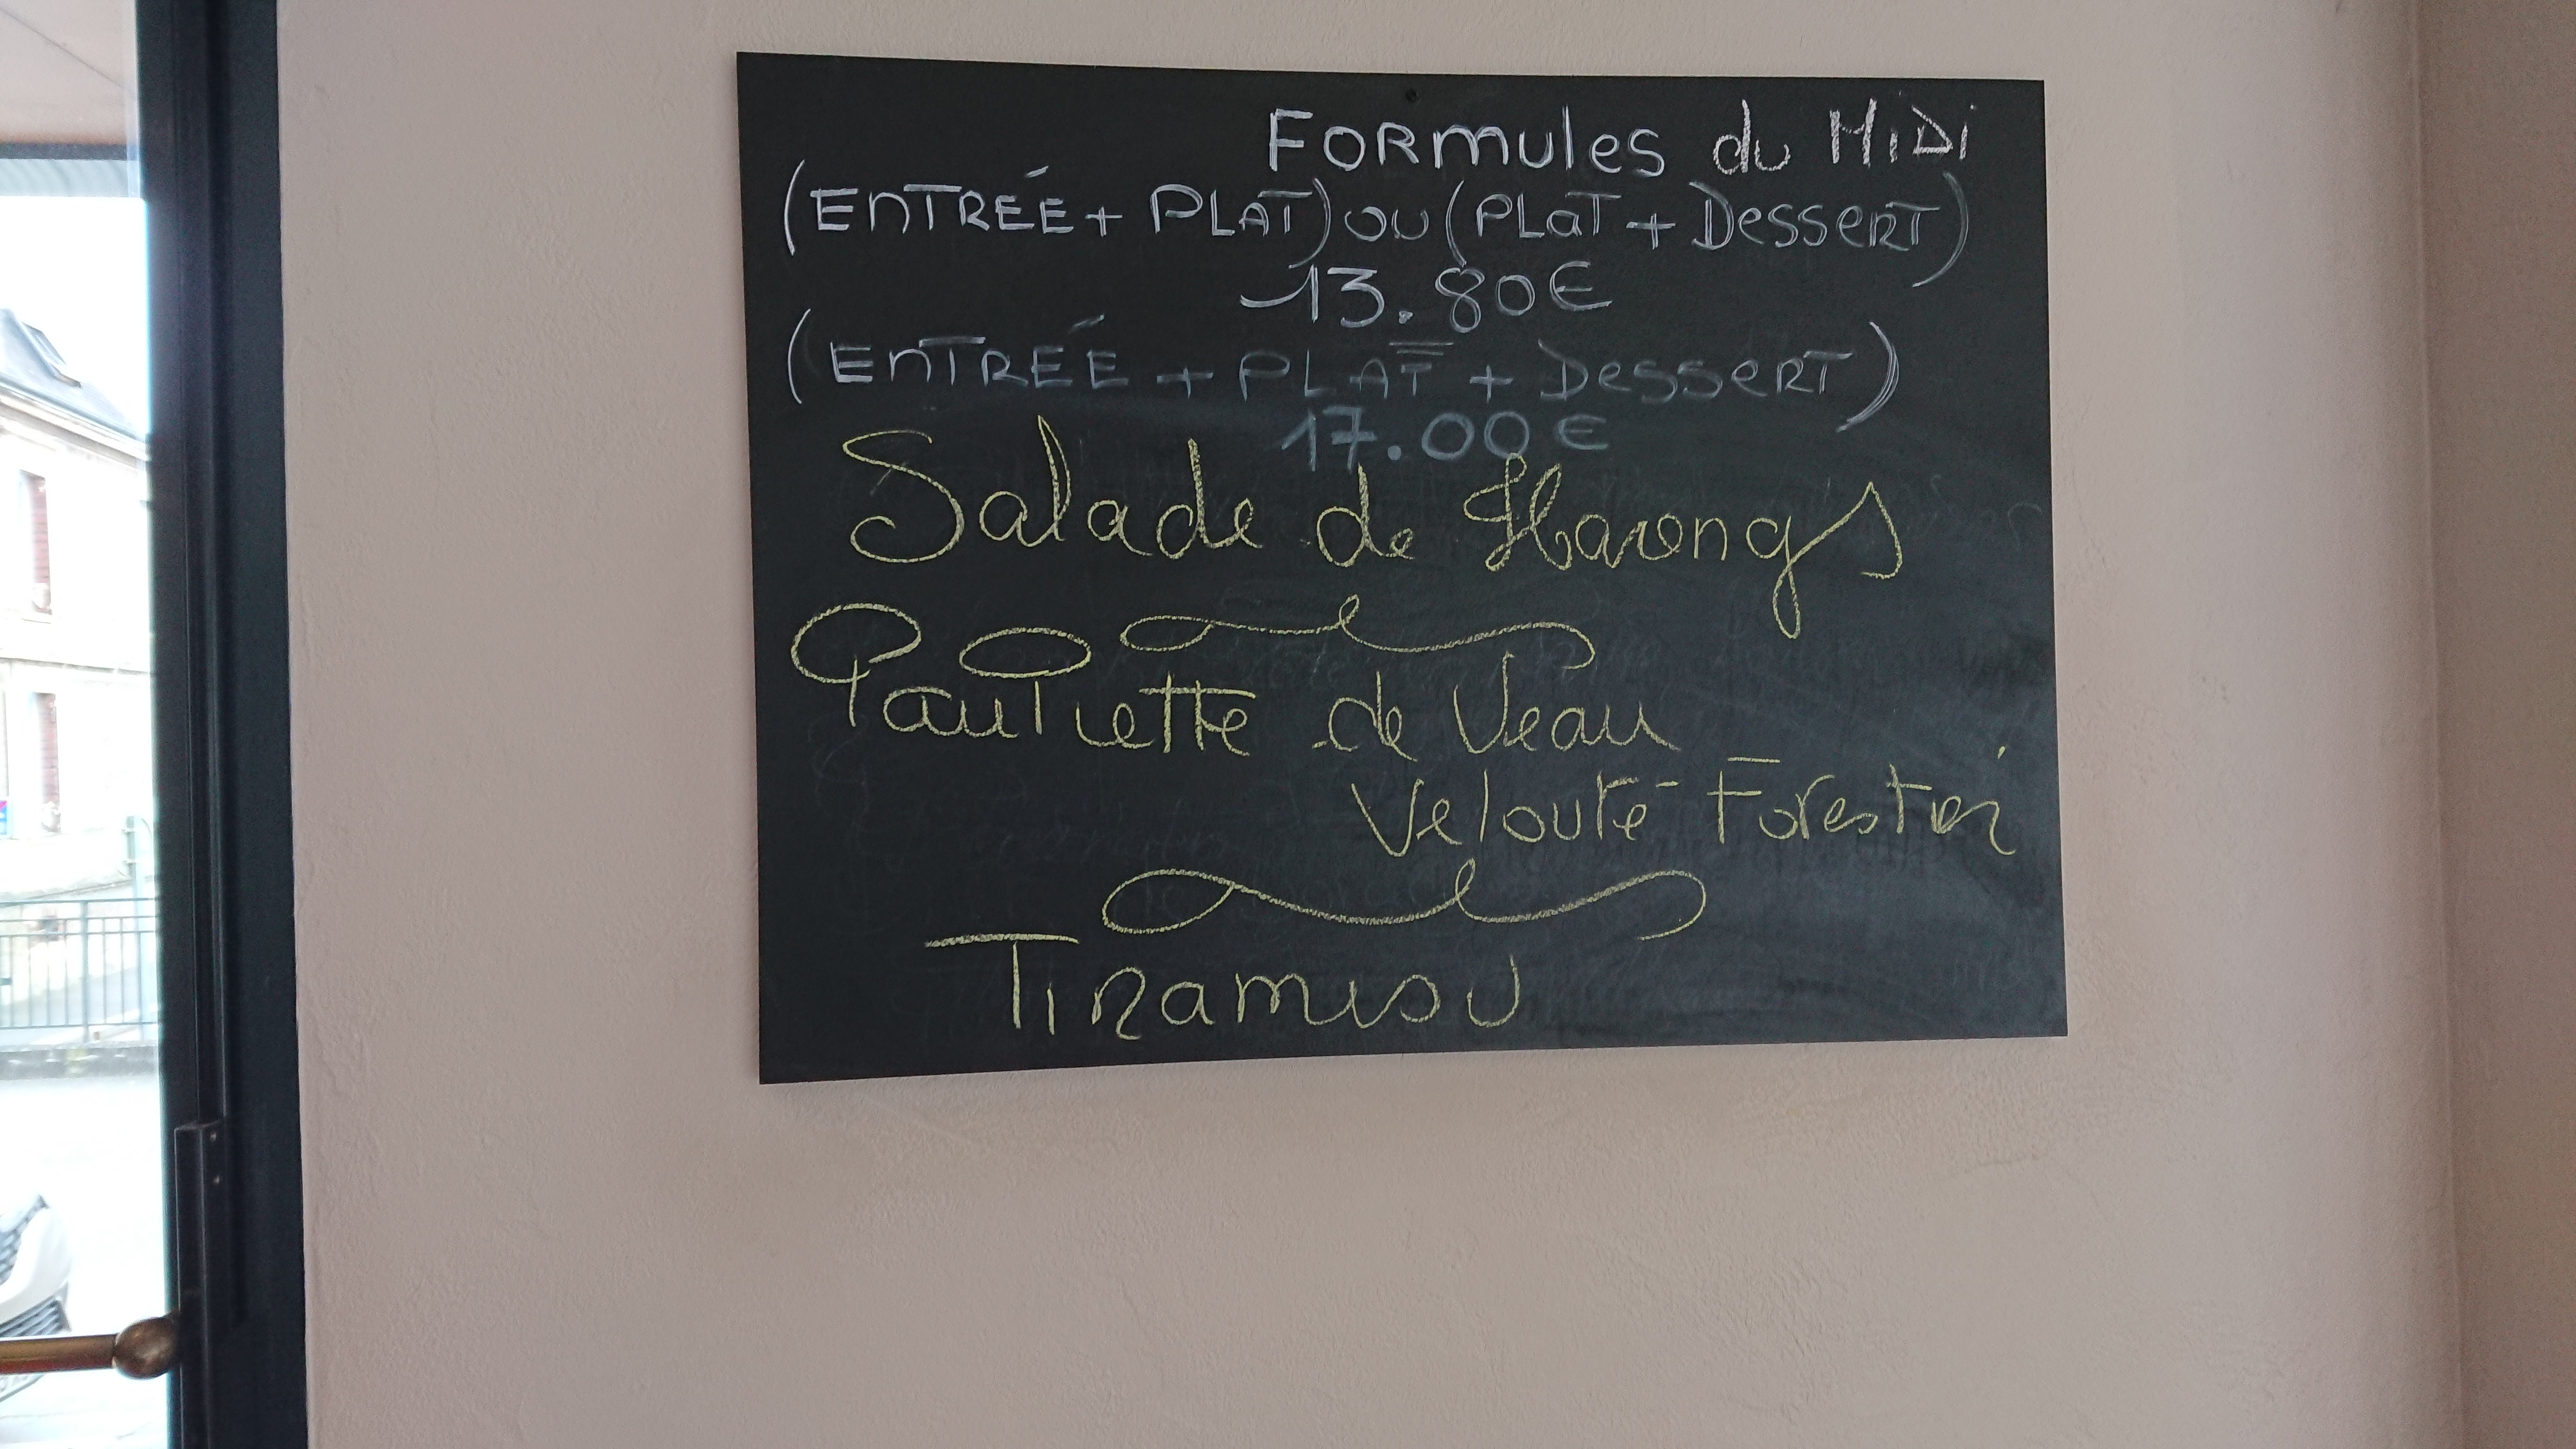 FORmules du MiDi
(EnTRÉE + PLAT) ou (PLaT + DesserT)
13.80€
(EnTRÉE + PLAT + DesserT)
17.00€
Salade de Harengs
PauPiette de Veau
Velouté Forestier
Tiramisu